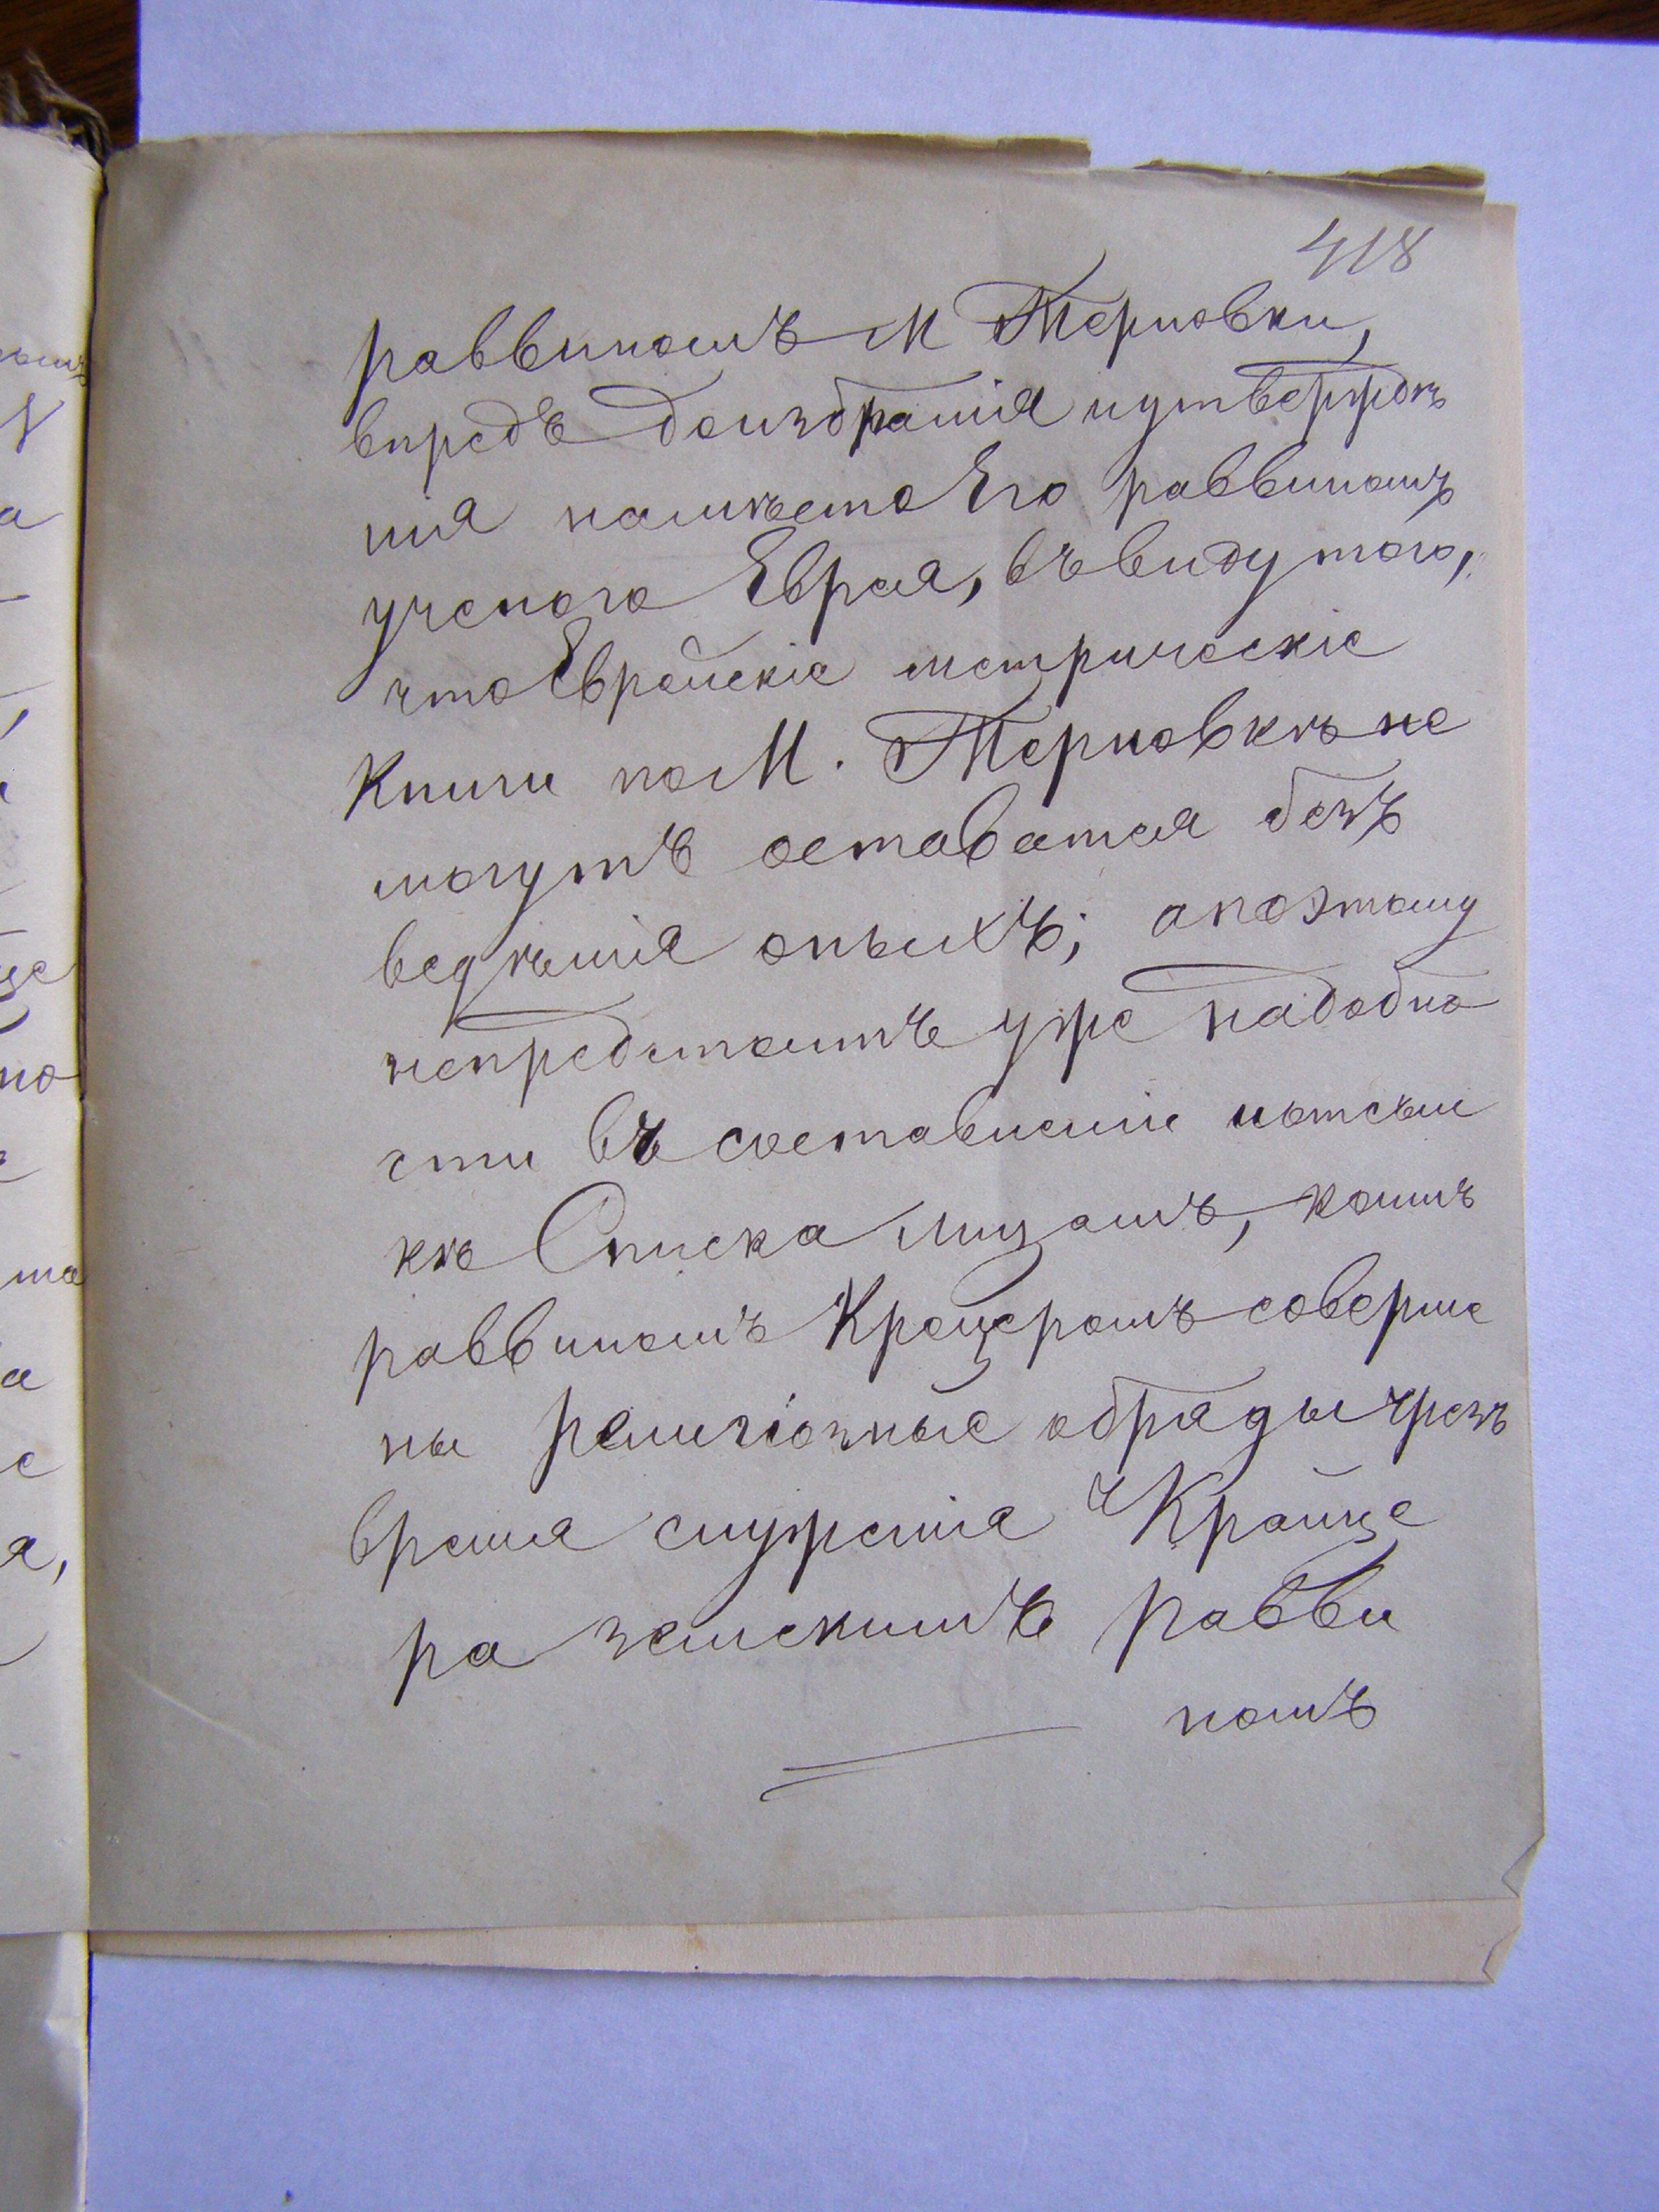 418
раввиномъ М Терновки,
впредъ доизбранія иутвержде
нія намѣсто Его раввиномъ
ученого Еврея, въвиду того,
что Еврейскіе метрическіе
Книги по М. Терновкѣ не
могутъ оставатся безъ
веденія оныхъ; апоэтому
непредстоитъ уже надобно
сти въ составленіи
кѣ Списка лицамъ, коимъ
раввиномъ Крейцеромъ соверше
ны религіозные обряды чрезъ
время служенія Крайце
ра земскимъ равви
номъ